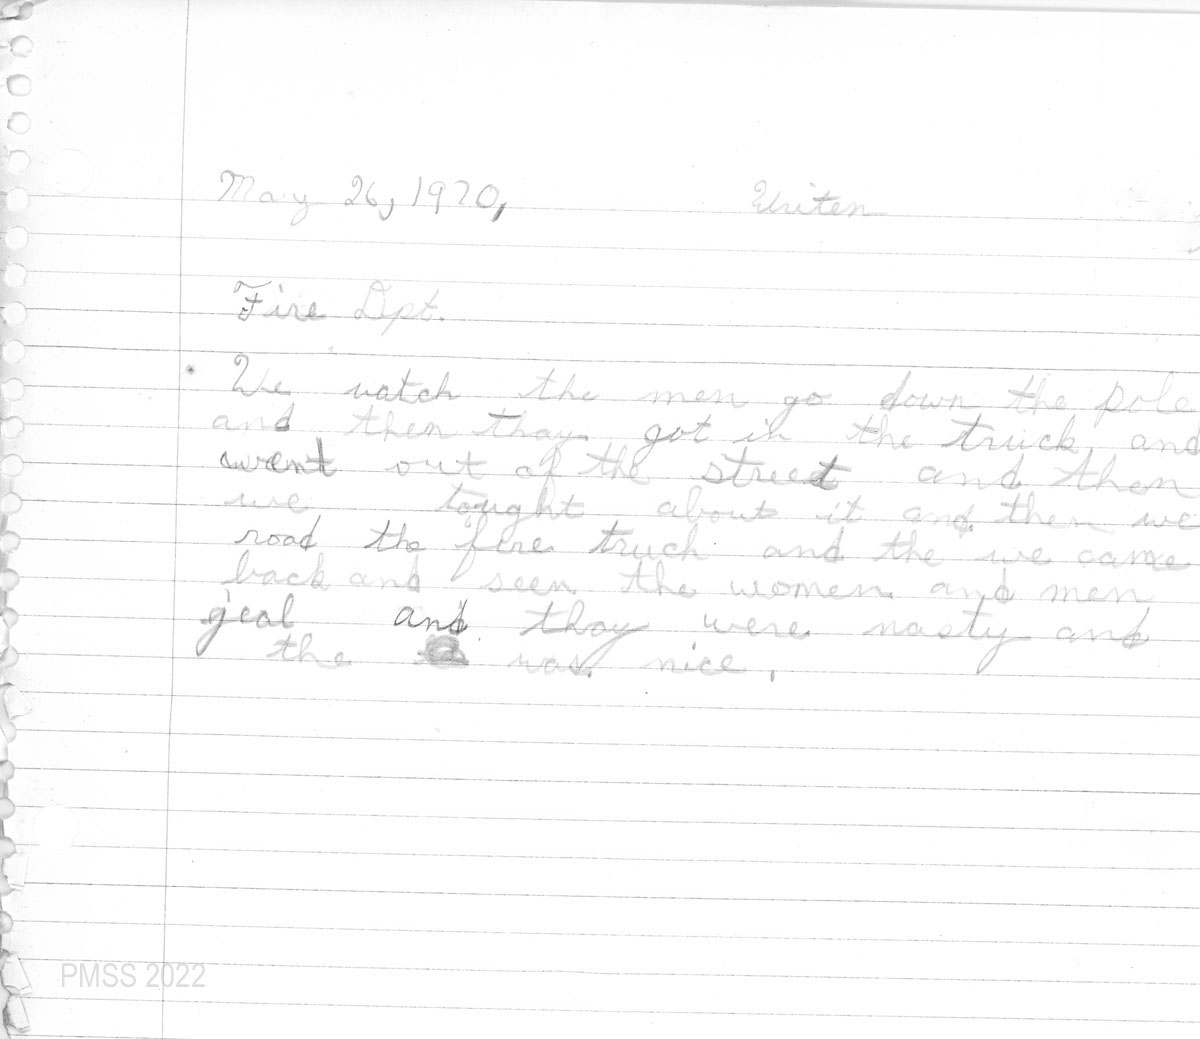 May 26, 1970, Writen
Fire Dpt.
We watch the men go down the pole
and then thay got in the truck and
went out of the street and then
we tought about it and then we
road the fire truch and the we came
back and seen the women and men
geal and thay were nasty and
the was nice.
PMSS 2022